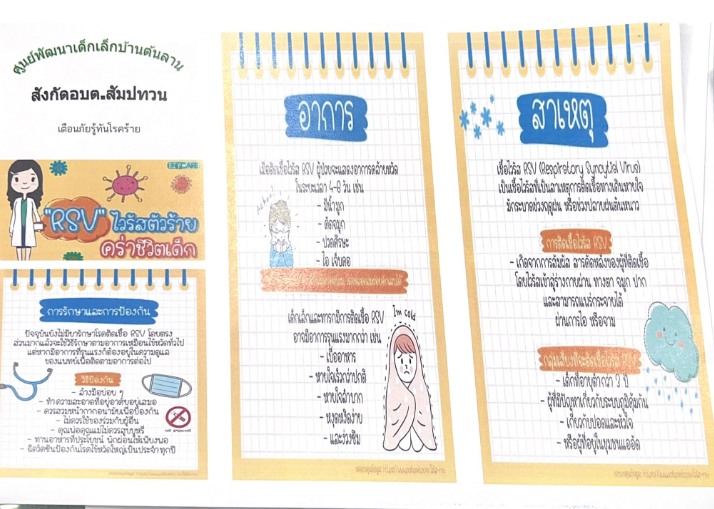 ศูนย์พัฒนาเด็กเล็กบ้านต้นลาน
สังกัดอบต.สัมปทวน
เตือนภัยรู้ทันโรคร้าย
"RSV" ไวรัสตัวร้าย
คร่าชีวิตเด็ก
การรักษาและการป้องกัน
ปัจจุบันยังไม่มียารักษาโรคติดเชื้อ RSV โดยตรง
ส่วนมากแล้วจะใช้วิธีรักษาตามอาการเหมือนไข้หวัดทั่วไป
แต่หากมีอาการที่รุนแรงก็ต้องอยู่ในความดูแล
ของแพทย์เพื่อติดตามอาการต่อไป
วิธีป้องกัน
- ล้างมือบ่อย ๆ
- ทำความสะอาดที่อยู่อาศัยอยู่เสมอ
- ควรสวมหน้ากากอนามัยเพื่อป้องกัน
- ไม่ควรใช้ของร่วมกับผู้อื่น
- คุณพ่อคุณแม่ไม่ควรสูบบุหรี่
- ทานอาหารที่มีประโยชน์ พักผ่อนให้เพียงพอ
- ฉีดวัคซีนป้องกันโรคไข้หวัดใหญ่เป็นประจำทุกปี
อาการ
เมื่อติดเชื้อไวรัส RSV ผู้ป่วยจะแสดงอาการคล้ายหวัด
ในระยะเวลา 4-6 วัน เช่น
- มีน้ำมูก
- คัดจมูก
- ปวดศีรษะ
- ไอ เจ็บคอ
เด็กเล็กและทารกมีการติดเชื้อ RSV
อาจมีอาการรุนแรงมากกว่า เช่น
I'm cold
- เบื่ออาหาร
- หายใจเร็วกว่าปกติ
- หายใจลำบาก
- หงุดหงิดง่าย
- และง่วงซึม
สาเหตุ
เชื้อไวรัส RSV (Respiratory Syncytial Virus)
เป็นเชื้อไวรัสที่เป็นสาเหตุการติดเชื้อทางเดินหายใจ
มักระบาดช่วงฤดูฝน หรือช่วงปลายฝนต้นหนาว
การติดเชื้อไวรัส RSV
- เกิดจากการสัมผัส สารคัดหลั่งของผู้ที่ติดเชื้อ
โดยไวรัสเข้าสู่ร่างกายผ่าน ทางตา จมูก ปาก
และสามารถแพร่กระจายได้
ผ่านการไอ หรือจาม
กลุ่มเสี่ยงที่จะติดเชื้อไวรัส RSV
- เด็กที่อายุต่ำกว่า 3 ปี
- ผู้ที่มีปัญหาเกี่ยวกับระบบภูมิคุ้มกัน
- เกี่ยวกับปอดและหัวใจ
- หรือผู้ที่อยู่ในชุมชนแออัด